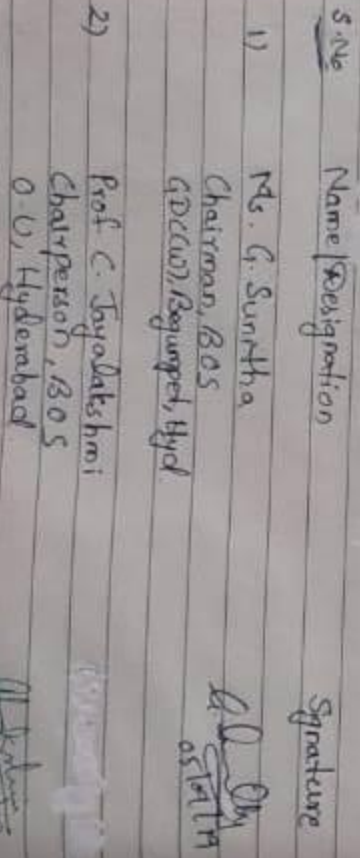 S.No Name/Designation Signature
1) Ms. G. Sunitha
Chairman, BOS
GDC(W), Begumpet, Hyd
05/07/19
2) Prof C. Jayalakshmi
Chairperson, BOS
O.U, Hyderabad